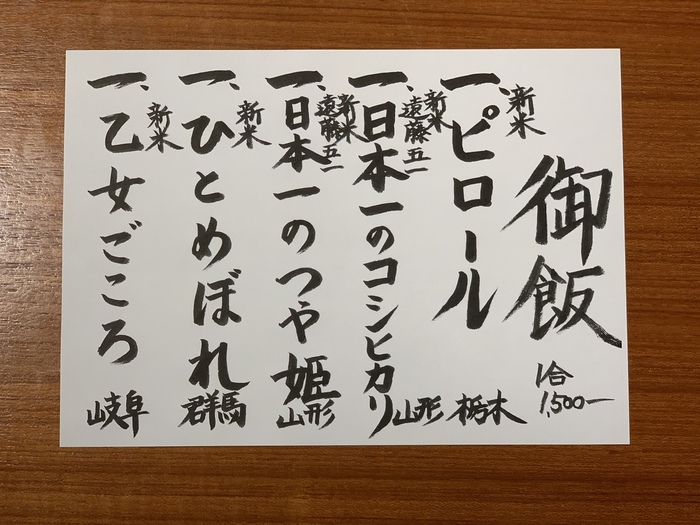 御飯
1合
1,500ー
新米
一、ピロール
栃木
新米
遠藤五一
一、日本一のコシヒカリ
山形
新米
遠藤五一
一、日本一のつや姫
山形
新米
一、ひとめぼれ
群馬
新米
一、乙女ごころ
岐阜